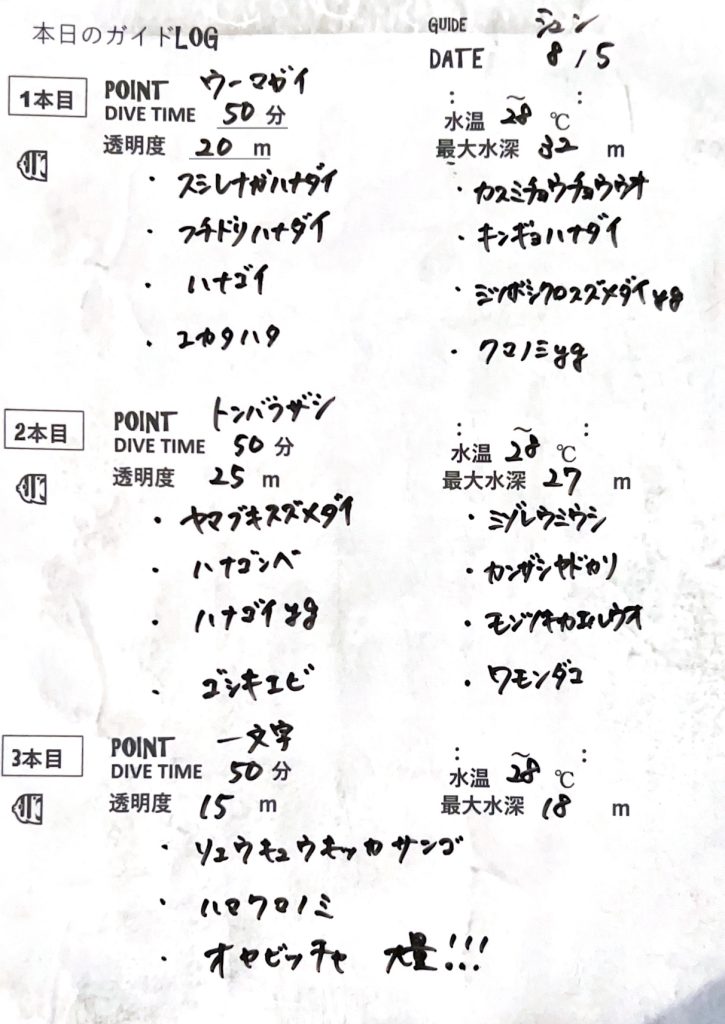 本日のガイドLOG
GUIDE ジュン
DATE 8/5
1本目
POINT ウーマガイ
DIVE TIME 50 分
: ~ :
水温 28 ℃
透明度 20 m
最大水深 32 m
・スミレナガハナダイ
・カスミチョウチョウウオ
・フチドリハナダイ
・キンギョハナダイ
・ハナゴイ
・ミツボシクロスズメダイyg
・ユカタハタ
・クマノミyg
2本目
POINT トンバラザシ
DIVE TIME 50 分
: ~ :
水温 28 ℃
透明度 25 m
最大水深 27 m
・ヤマブキスズメダイ
・ミゾレウミウシ
・ハナゴンベ
・カンザシヤドカリ
・ハナゴイyg
・モンツキカエルウオ
・ゴシキエビ
・ワモンダコ
3本目
POINT 一文字
DIVE TIME 50 分
: ~ :
水温 28 ℃
透明度 15 m
最大水深 18 m
・リュウキュウキッカサンゴ
・ハマクマノミ
・オヤビッチャ 大量!!!